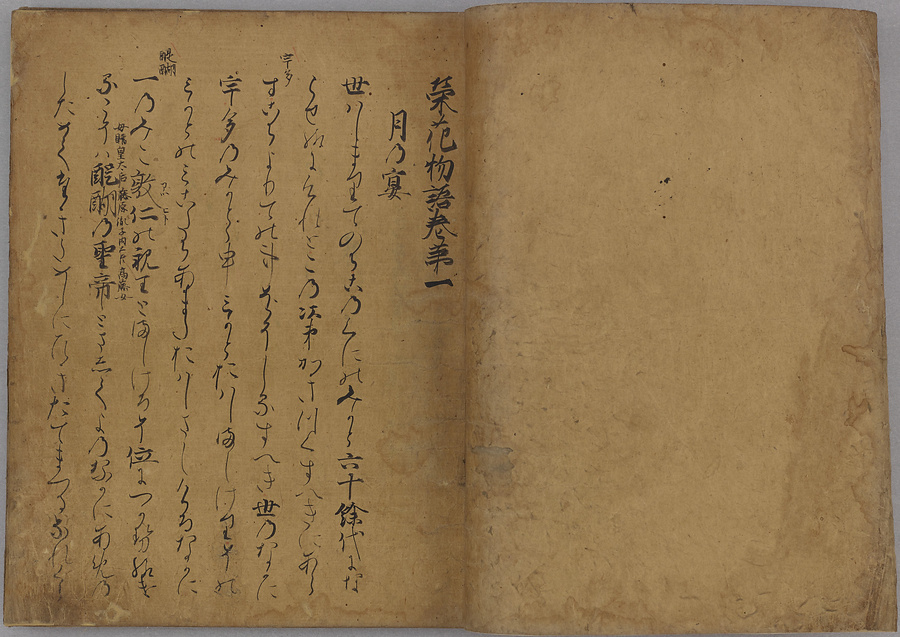 榮花物語巻第一
月の宴
世はしまりてのちこのくにのみかと六十餘代にな
らせ給にけれとこの次第かきつくすへきにあら
宇多
すこちよりての事をそしるすへき世のなかに
宇多のみかとゝ申みかとおはしましけりその
みかとのみこたちあまたおはしましけるなかに
醍醐
アツヒト
一のみこ敦仁の親王とましけるそ位につかせ給け
母贈皇太后藤原胤子内大臣高藤女
るこそは醍醐の聖帝とましてよのなかにあめの
しためてたきためしにひきたてまつるなれ